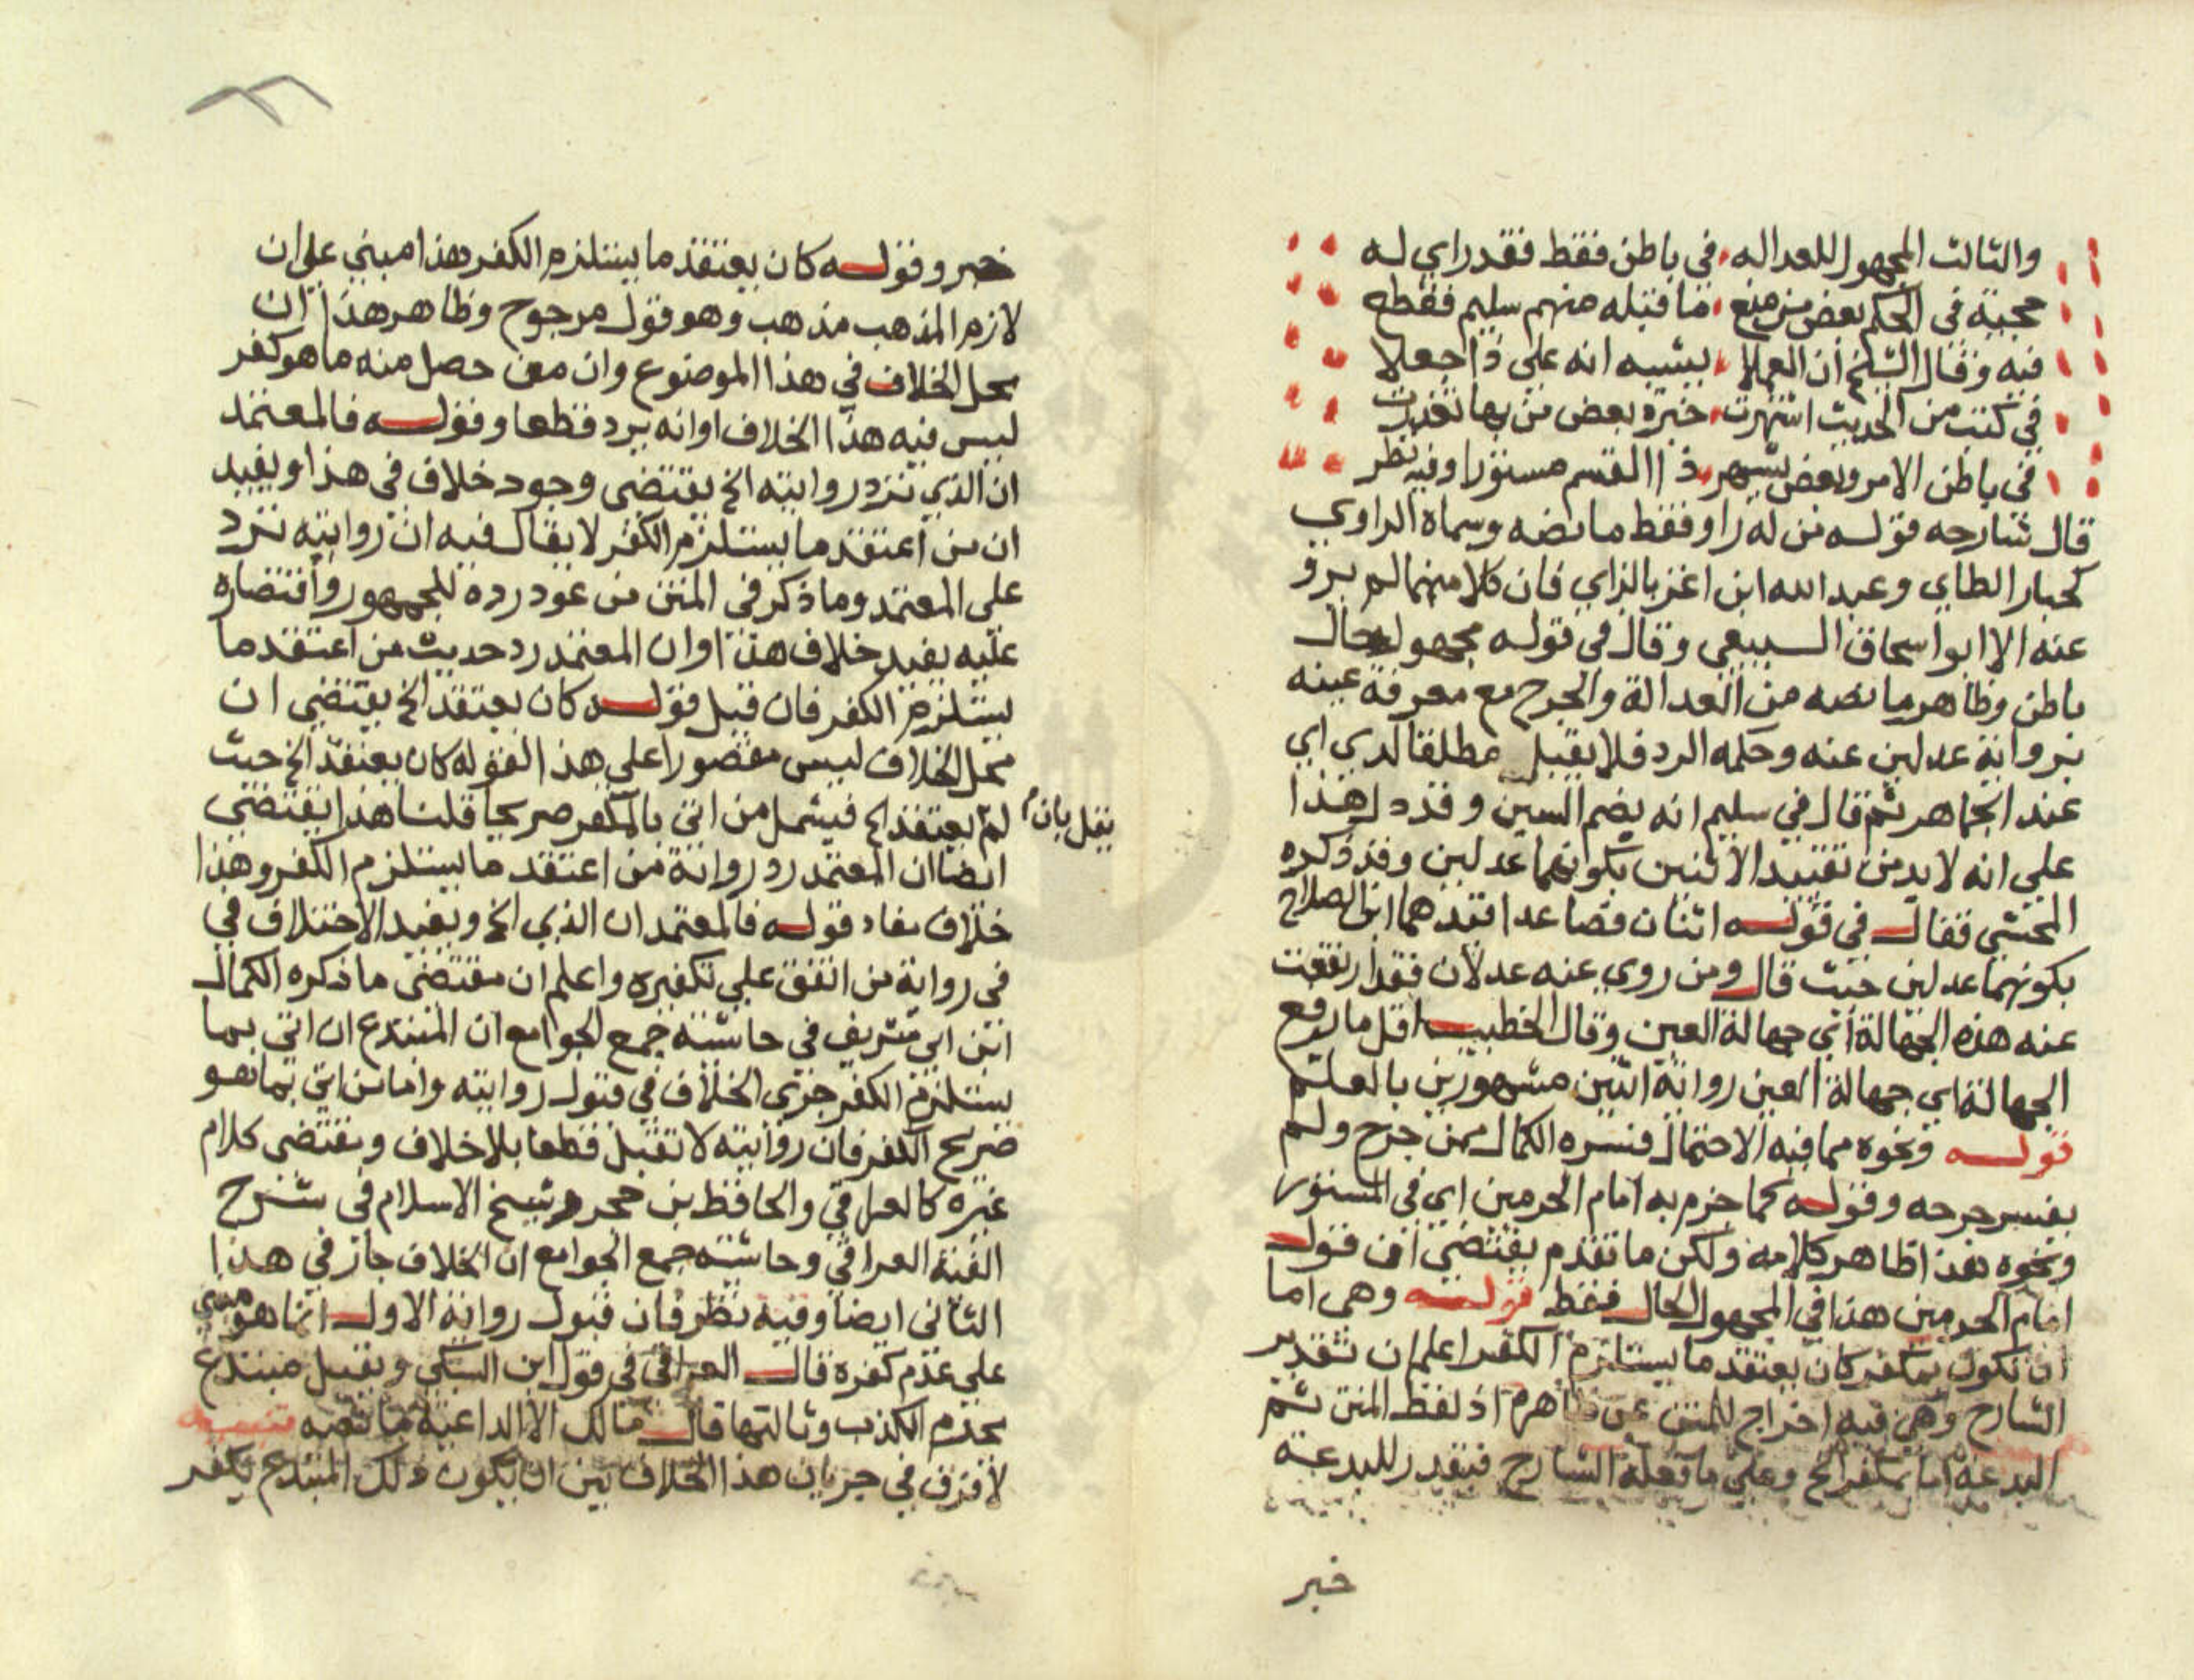 والثالث المجهول للعداله في باطن فقط فقد راي له
حجية في الحكم بعض من منع ما قبله منهم سليم فقطع
فيه وقال الشيخ ان العملا يشبه انه علي ذا جعلا
في كتب من الحديث اشتهرت خبرة بعض من بها تعذرت
في باطن الامر وبعض يشهر ذا القسم مستورا وفيه نظر
قال شارحه قوله من له راو فقط ما نصه وسماه الراوي
كجبار الطاي وعبد الله ابن اغز بالزاي فان كلا منهما لم يرو
عنه الا ابو اسحاق السبيعي وقال في قوله مجهول حال
باطن وظاهر ما نصه من العدالة والجرح مع معرفة عينه
برواية عدلين عنه وحكمه الرد فلا يقبل مطلقا لدي اي
عند الجماهر ثم قال في سليم انه بضم السين وقد دل هذا
علي انه لا بد من تقييد الاثنين بكونهما عدلين وقد ذكره
المحشي فقال في قوله اثنان فصاعدا قيدهما ابن الصلاح
بكونهما عدلين حيث قال ومن روي عنه عدلان فقد ارتفعت
عنه هذه الجهالة اي جهالة العين وقال الخطيب اقل ما يرفع
الجهالة اي جهالة العين رواية اثنين مشهورين بالعلم
قوله ونحوه مما فيه الاحتمال فسره الكمال بمن جرح ولم
يفسر جرحه وقوله كما جزم به امام الحرمين اي في المستور
ونحوه هذا ظاهر كلامه ولكن ما تقدم يقتضي ان قول
امام الحرمين هذا في المجهول الحال فقط قوله وهي اما
ان تكون بمكفر كان يعتقد ما يستلزم الكفر اعلم ان تقدير
الشارح وهي فيه اخراج للمتن عن ظاهره اذ لفظ المتن ثم
البدعة اما بمكفر الخ وعلي ما فعله الشارح فيقدر للبدعة
خبر
خبر وقوله كان يعتقد ما يستلزم الكفر هذا مبني علي ان
لازم المذهب مذهب وهو قول مرجوح وظاهر هذا ان
محل الخلاف في هذا الموضوع وان من حصل منه ما هو كفر
ليس فيه هذا الخلاف او انه يرد قطعا وقوله فالمعتمد
ان الذي ترد روايته الخ يقتضي وجود خلاف في هذا ويفيد
ان من اعتقد ما يستلزم الكفر لا يقال فيه ان روايته ترد
على المعتمد وما ذكر في المتن من عود رده للجمهور واقتصاره
عليه يفيد خلاف هذا وان المعتمد رد حديث من اعتقد ما
يستلزم الكفر فان قيل قوله كان يعتقد الخ يقتضي ان
محل الخلاف ليس مقصورا علي هذا لقوله كان يعتقد الخ حيث
لم يعتقد الخ فيشمل من اتى بالمكفر صريحا قلنا هذا يقتضي
يقل بان
ايضا ان المعتمد رد رواية من اعتقد ما يستلزم الكفر وهذا
خلاف مفاد قوله فالمعتمد ان الذي الخ ويفيد الاختلاف في
في رواية من اتفق علي تكفيره واعلم ان مقتضي ما ذكره الكمال
ابن ابي شريف في حاشية جمع الجوامع ان المبتدع ان اتى بما
يستلزم الكفر جرى الخلاف في قبول روايته واما من اتي بما هو
صريح الكفر فان روايته لا تقبل قطعا بلا خلاف ويقتضى كلام
غيره كالعراقي والحافظ بن حجر وشيخ الاسلام في شرح
الفية العراقي وحاشية جمع الجوامع ان الخلاف جار في هذا
الثاني ايضا وفيه نظر فان قبول رواية الاول انما هو مبني
على عدم كفره قال العراقي في قول ابن السبكي ويقبل مبتدع
يحرم الكذب وثالثها قال مالك الا الداعية ما نصه تنبيه
لا فرق في جريان هذا الخلاف بين ان يكون ذلك المبتدع يكفر